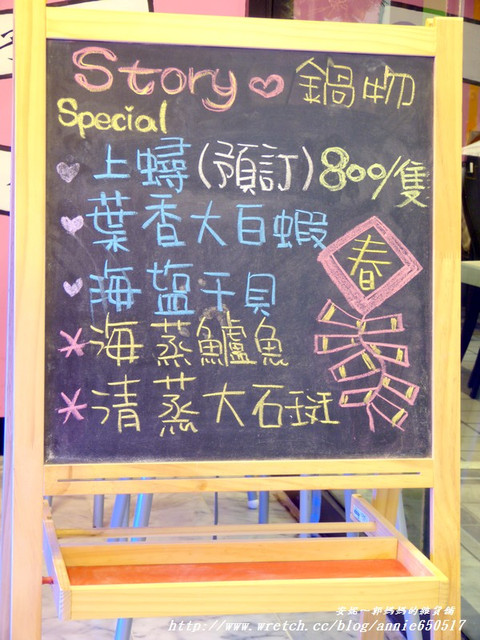 Story ♡ 鍋物
Special
♡ 上蟳(預訂)800/隻
♡ 葉香大白蝦
♡ 海塩干貝
* 海蒸鱸魚
* 清蒸大石斑
春
安妮~郭媽媽的雜貨舖
http://www.wretch.cc/blog/annie650517